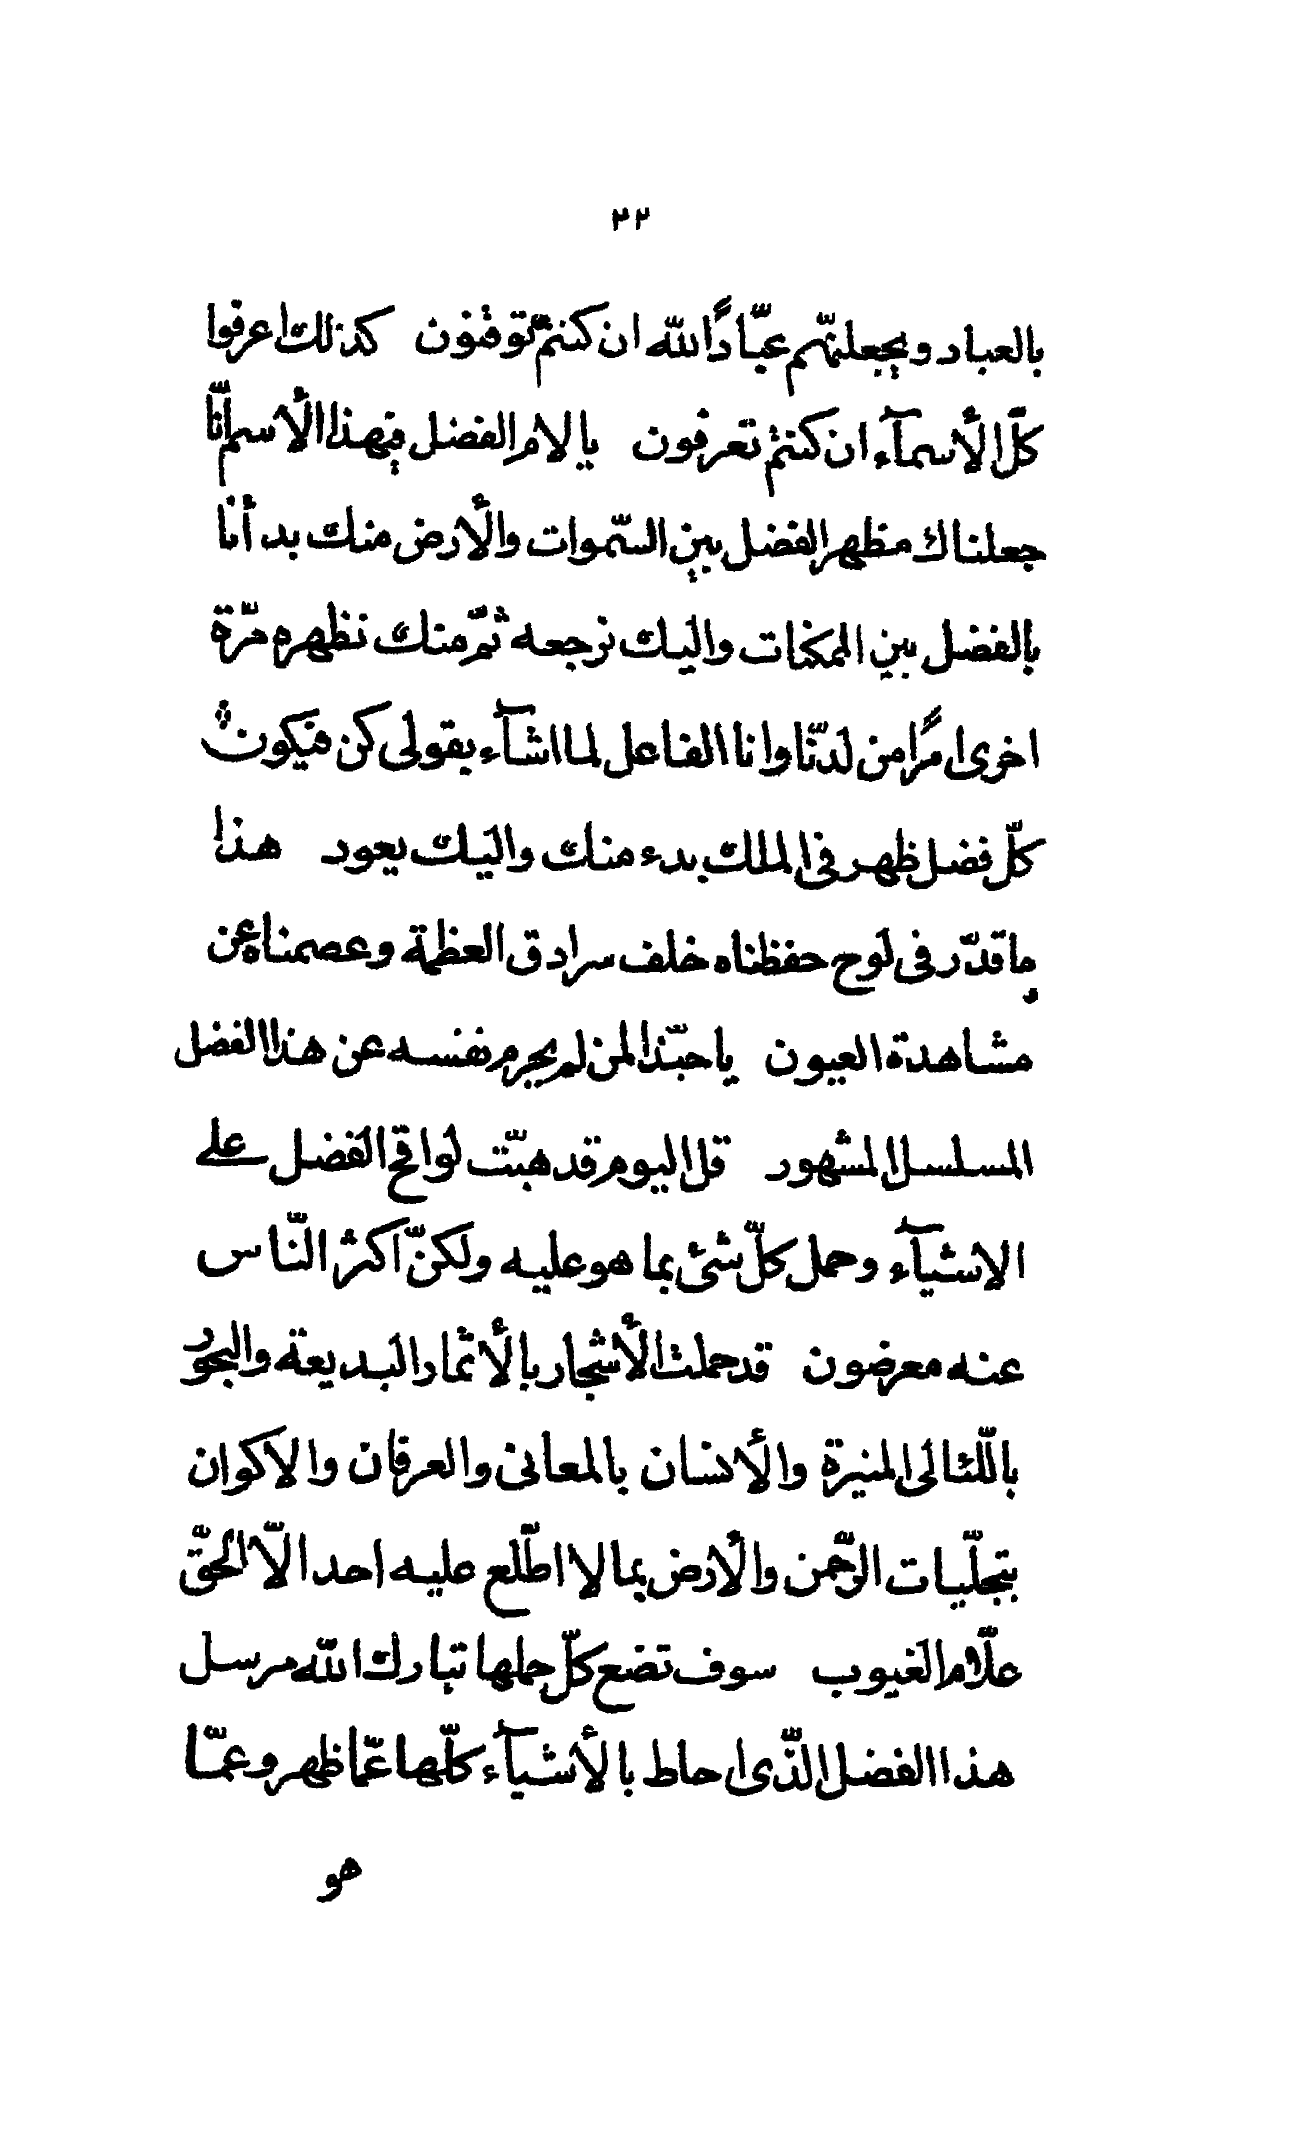 ٣٢
بالعباد ويجعلنّهم عبّادًا لله ان كنتم توقنون كذلك اعرفوا
كلّ الأسمآء ان كنتم تعرفون يا لام الفضل فى هذا الأسم انّا
جعلناك مظهر الفضل بين السّموات والأرض منك بدأنا
بالفضل بين الممكنات واليك نرجعه ثمّ منك نظهره مرّة
اخرى امرًا من لدنّا وانا الفاعل لما اشآء بقولى كن فيكون
كلّ فضل ظهر فى الملك بدء منك واليك يعود هذا
ما قدّر فى لوح حفظناه خلف سرادق العظمة وعصمناه عن
مشاهدة العيون يا حبّذا لمن لم يحرم نفسه عن هذا الفضل
المسلسل المشهور قل اليوم قد هبّت لواقح الفضل على
الاشيآء وحمل كلّ شئ بما هو عليه ولكنّ اكثر النّاس
عنه معرضون قد حملت الأشجار بالأثمار البديعة والبحور
باللّئالى المنيرة والأنسان بالمعانى والعرفان والاكوان
بتجلّيات الرّحمن والأرض بما لا اطّلع عليه احد الاّ الحقّ
علاّم الغيوب سوف تضع كلّ حملها تبارك الله مرسل
هذا الفضل الّذى احاط بالأشيآء كلّها عمّا ظهر وعمّا
هو